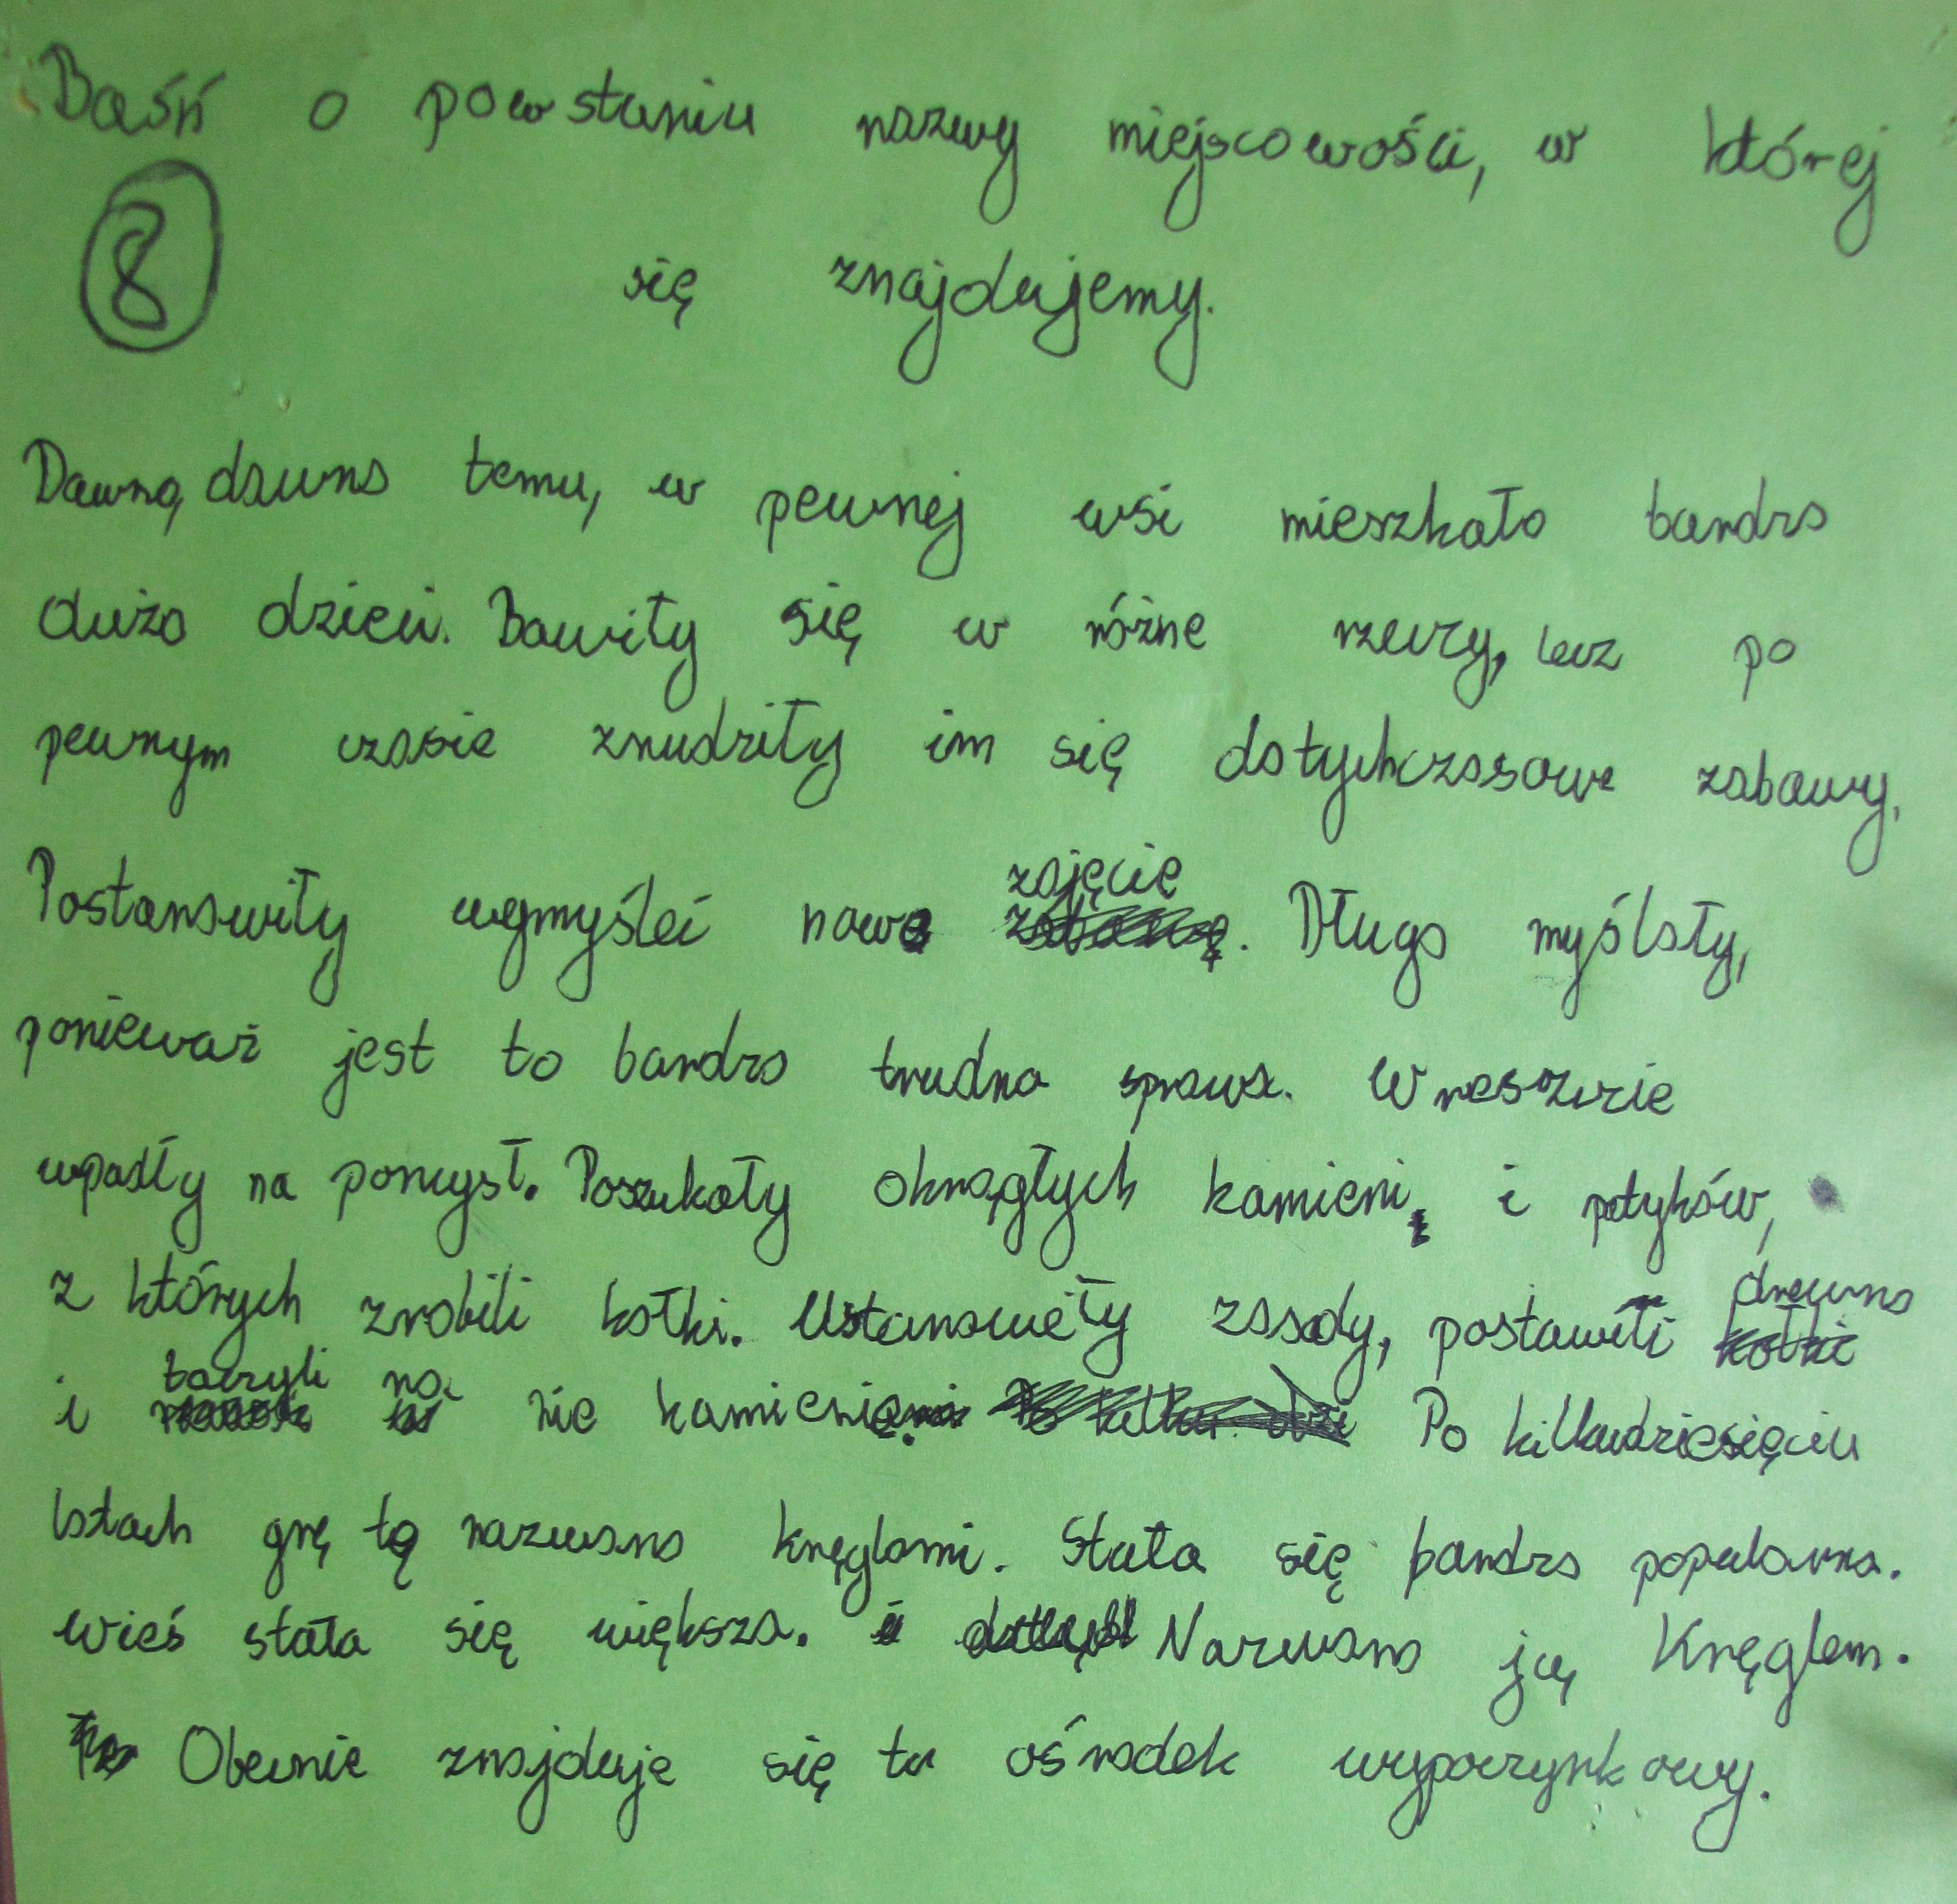 Baśń o powstaniu nazwy miejscowości, w której
8
się znajdujemy.
Dawno, dawno temu, w pewnej wsi mieszkało bardzo
dużo dzieci. Bawiły się w różne rzeczy, lecz po
pewnym czasie znudziły im się dotychczasowe zabawy.
Postanowiły wymyśleć nowe zajęcie. Długo myślały,
ponieważ jest to bardzo trudna sprawa. Wreszcie
wpadły na pomysł. Poszukały okrągłych kamieni i patyków,
z których zrobili kołki. Ustanowiły zasady, postawili drewno
i toczyli na nie kamienie. Po kilkudziesięciu
latach grę tą nazwano kręglami. Stała się bardzo popularna.
wieś stała się większa. Nazwano ją Kręglem.
Obecnie znajduje się tu ośrodek wypoczynkowy.